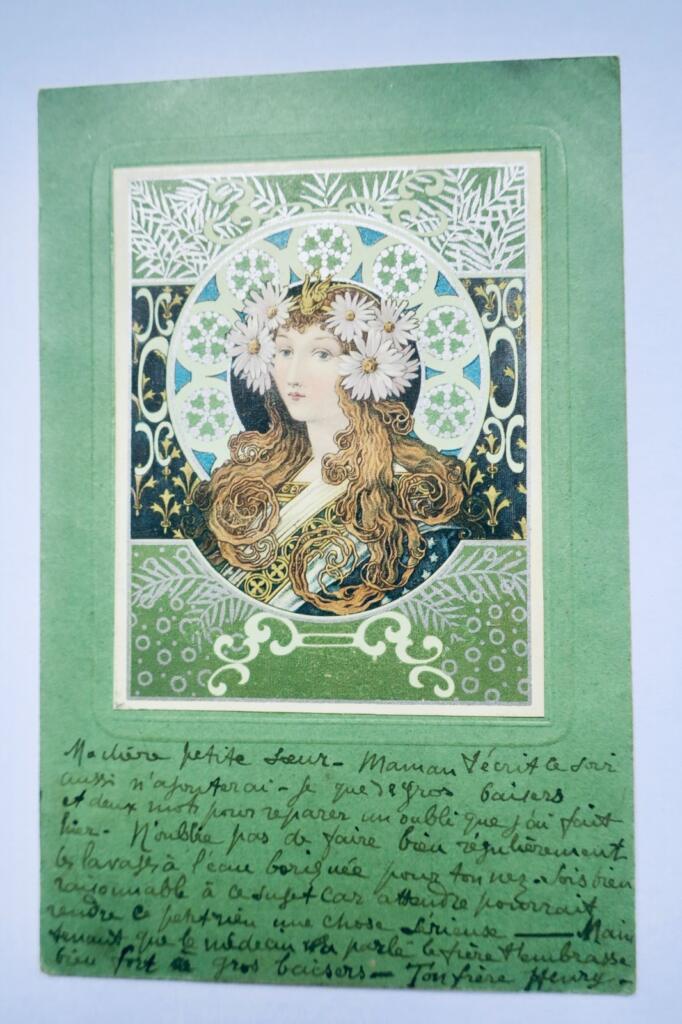 Ma chère petite sœur - Maman t'écrit ce soir
aussi n'ajouterai-je que de gros baisers
et deux mots pour reparer un oubli que j'ai fait
hier. N'oublie pas de faire bien régulièrement
les lavages à l'eau boriquée pour ton nez. Sois bien
raisonnable à ce sujet car attendre pourrait
rendre ce petit rien une chose sérieuse — Main
tenant que le médecin a parlé le frère t'embrasse
bien fort de gros baisers - Ton frère Henry.